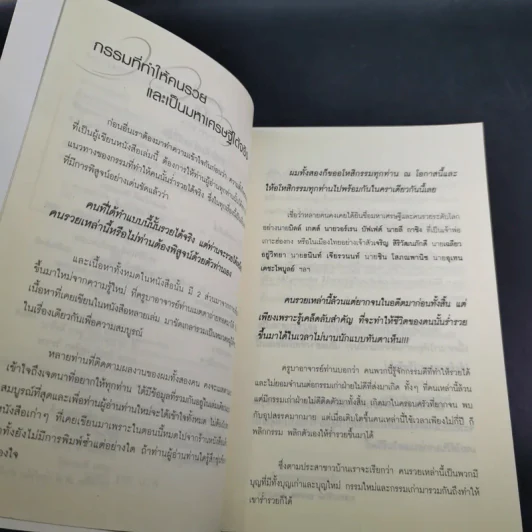 กรรมที่ทำให้คนรวย
และเป็นมหาเศรษฐีได้จริง
ก่อนอื่นเราต้องมาทำความเข้าใจกันก่อนว่า
ที่เป็นผู้เขียนหนังสือเล่มนี้ ต้องการให้ท่านผู้อ่าน
แนวทางของกรรมที่ทำให้คนนั้นร่ำรวยได้จริง
ที่มีการพิสูจน์อย่างเด่นชัดแล้วว่า
คนที่ได้ทำแบบนี้นั้นรวยได้จริง แต่ท่านจะรวยได้
คนรวยเหล่านี้หรือไม่ท่านต้องพิสูจน์ด้วยตัวท่านเอง
และเนื้อหาทั้งหมดในหนังสือนั้น มี 2 ส่วน
ขึ้นมาใหม่จากความรู้ใหม่ ที่ครูบาอาจารย์ท่านเมตตา
เนื้อหาที่เคยเขียนในหนังสือหลายเล่ม
ในเรื่องเดียวกันเพื่อความสมบูรณ์
หลายท่านที่ติดตามผลงานของผมทั้งสองคน คงจะ
เข้าใจถึงเจตนาที่อยากให้ทุกท่าน ได้มีข้อมูลที่รวมกันอยู่ในเล่มเดียว
สมบูรณ์ที่สุดและเพื่อผู้อ่านท่านใหม่จะได้เข้าใจทั้งหมด
หนังสือเก่าๆ ที่เคยเขียนมาเพราะในตอนนี้หมดไปจากร้านหนังสือ
ทั้งยังไม่มีการพิมพ์ซ้ำแต่อย่างใด ถ้าท่านผู้อ่านท่านใด
ผมทั้งสองก็ขออโหสิกรรมทุกท่าน ณ โอกาสนี้และ
ให้อโหสิกรรมทุกท่านไปพร้อมกันในคราเดียวกันนี้เลย
เชื่อว่าหลายคนคงเคยได้ยินชื่อมหาเศรษฐีและคนรวยระดับโลก
อย่างนายบิลล์ เกตส์ นายวอร์เรน บัฟเฟ็ต์ นายลี กาชิง ที่เป็นเจ้าพ่อ
เกาะฮ่องกง หรือในเมืองไทยอย่างเจ้าสัวเจริญ สิริวัฒนภักดี นายเฉลียว
อยู่วิทยา นายธนินท์ เจียรวนนท์ นายชิน โสภณพานิช นายอุเทน
เตชะไพบูลย์ ฯลฯ
คนรวยเหล่านี้ล้วนแต่ยากจนในอดีตมาก่อนทั้งสิ้น แต่
เพียงเพราะรู้เคล็ดลับสำคัญ ที่จะทำให้ชีวิตของคนนั้นร่ำรวย
ขึ้นมาได้ในเวลาไม่นานนักแบบทันตาเห็น!!!
ครูบาอาจารย์ท่านบอกว่า คนพวกนี้รู้จักกรรมดีที่ทำให้ร่ำรวยได้
และไม่ยอมจำนนต่อกรรมเก่าฝ่ายไม่ดีที่ส่งมาเกิด ทั้งๆ ที่คนเหล่านี้ล้วน
แต่มีกรรมเก่าฝ่ายไม่ดีติดตัวมาทั้งสิ้น เกิดมาในครอบครัวที่ยากจน พบ
กับอุปสรรคมากมาย แต่เมื่อเติบโตขึ้นคนเหล่านี้ใช้เวลาเพียงไม่กี่ปี ก็
พลิกกรรม พลิกตัวเองให้ร่ำรวยขึ้นมาได้
ซึ่งตามประสาชาวบ้านเราจะเรียกว่า คนรวยเหล่านี้เป็นพวกมี
บุญที่มีทั้งบุญเก่าและบุญใหม่ กรรมใหม่และกรรมเก่ามารวมกันถึงทำให้
เขาร่ำรวยก็ได้